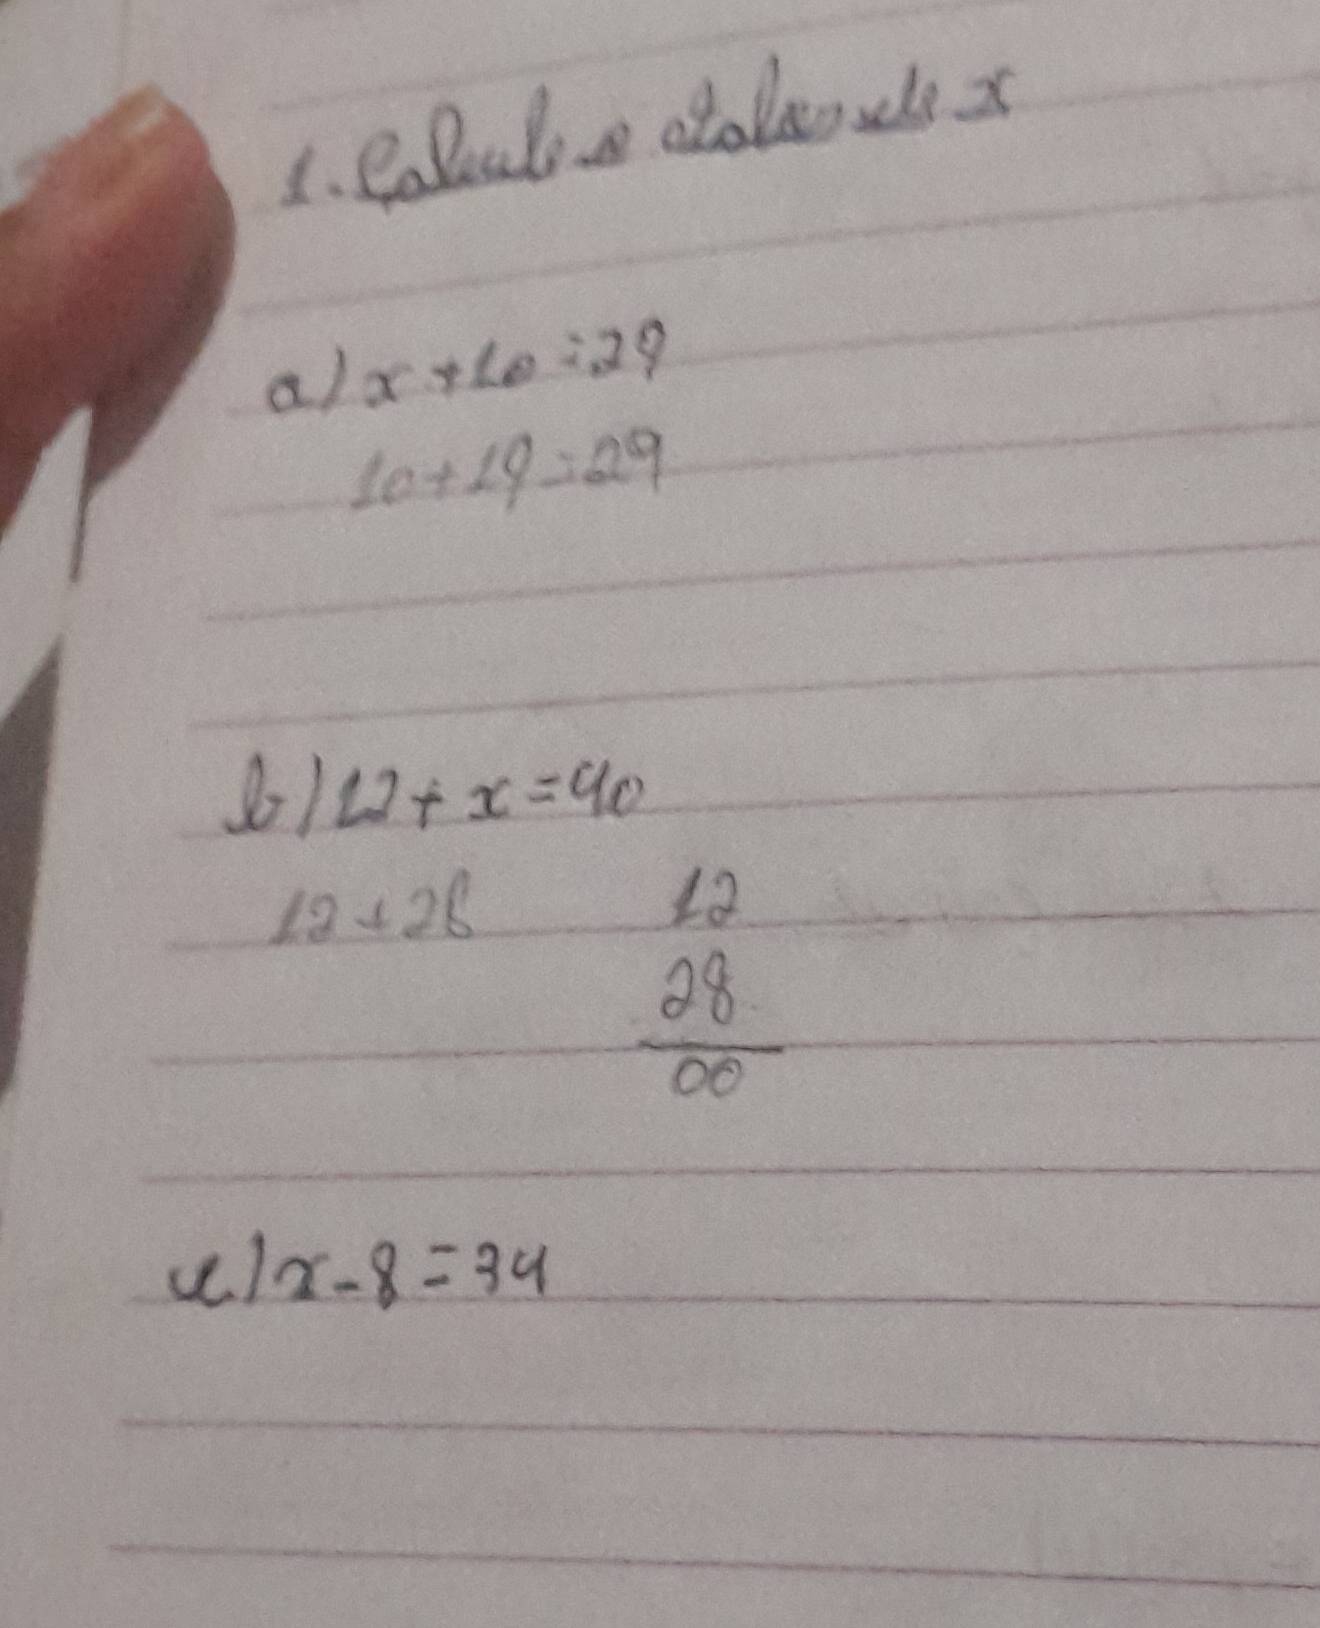 1. Calcule o valor de x
a) x + 10 = 29
10 + 19 = 29
b) 12 + x = 40
12 + 28 12
28
00
c) x - 8 = 34